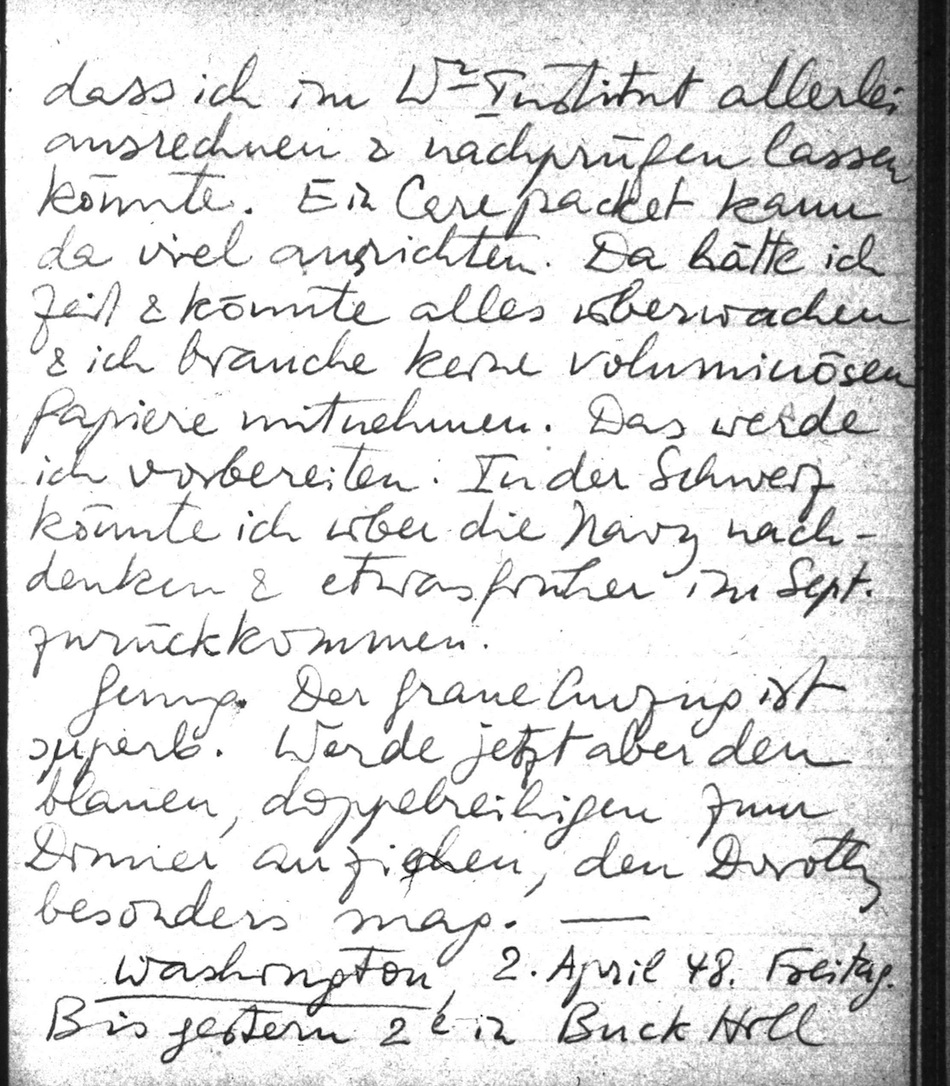 dass ich im Wr Institut allerlei
ausrechnen & nachprüfen lassen
könnte. Ein Carepacket kann
da viel ausrichten. Da hätte ich
Zeit & könnte alles überwachen
& ich brauche keine voluminösen
Papiere mitnehmen. Das werde
ich vorbereiten. In der Schweiz
könnte ich über die Navy nach-
denken & etwas früher im Sept.
zurückkommen.
Genug. Der graue Anzug ist
superb. Werde jetzt aber den
blauen, doppelreihigen zum
Dinner anziehen, den Dorothy
besonders mag. —
Washington, 2. April 48. Freitag.
Bis gestern in Buck Hill